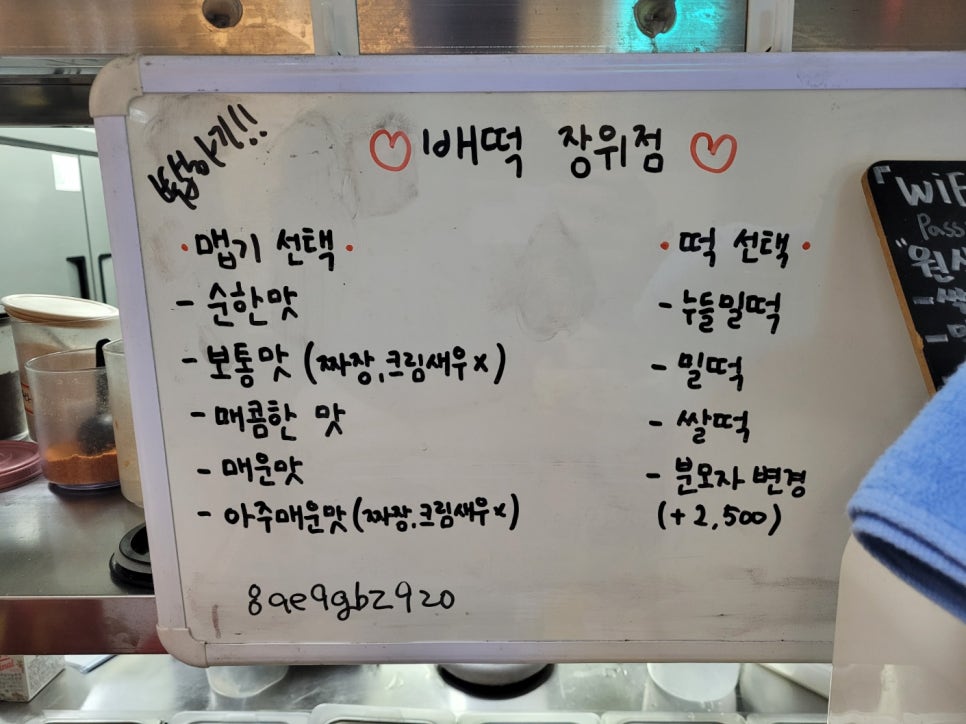 ♡ 배떡 장위점 ♡
· 맵기 선택 ·
- 순한맛
- 보통맛 (짜장,크림새우x)
- 매콤한 맛
- 매운맛
- 아주매운맛 (짜장,크림새우x)
· 떡 선택 ·
- 누들밀떡
- 밀떡
- 쌀떡
- 분모자 변경
(+2,500)
8ae9gbz920